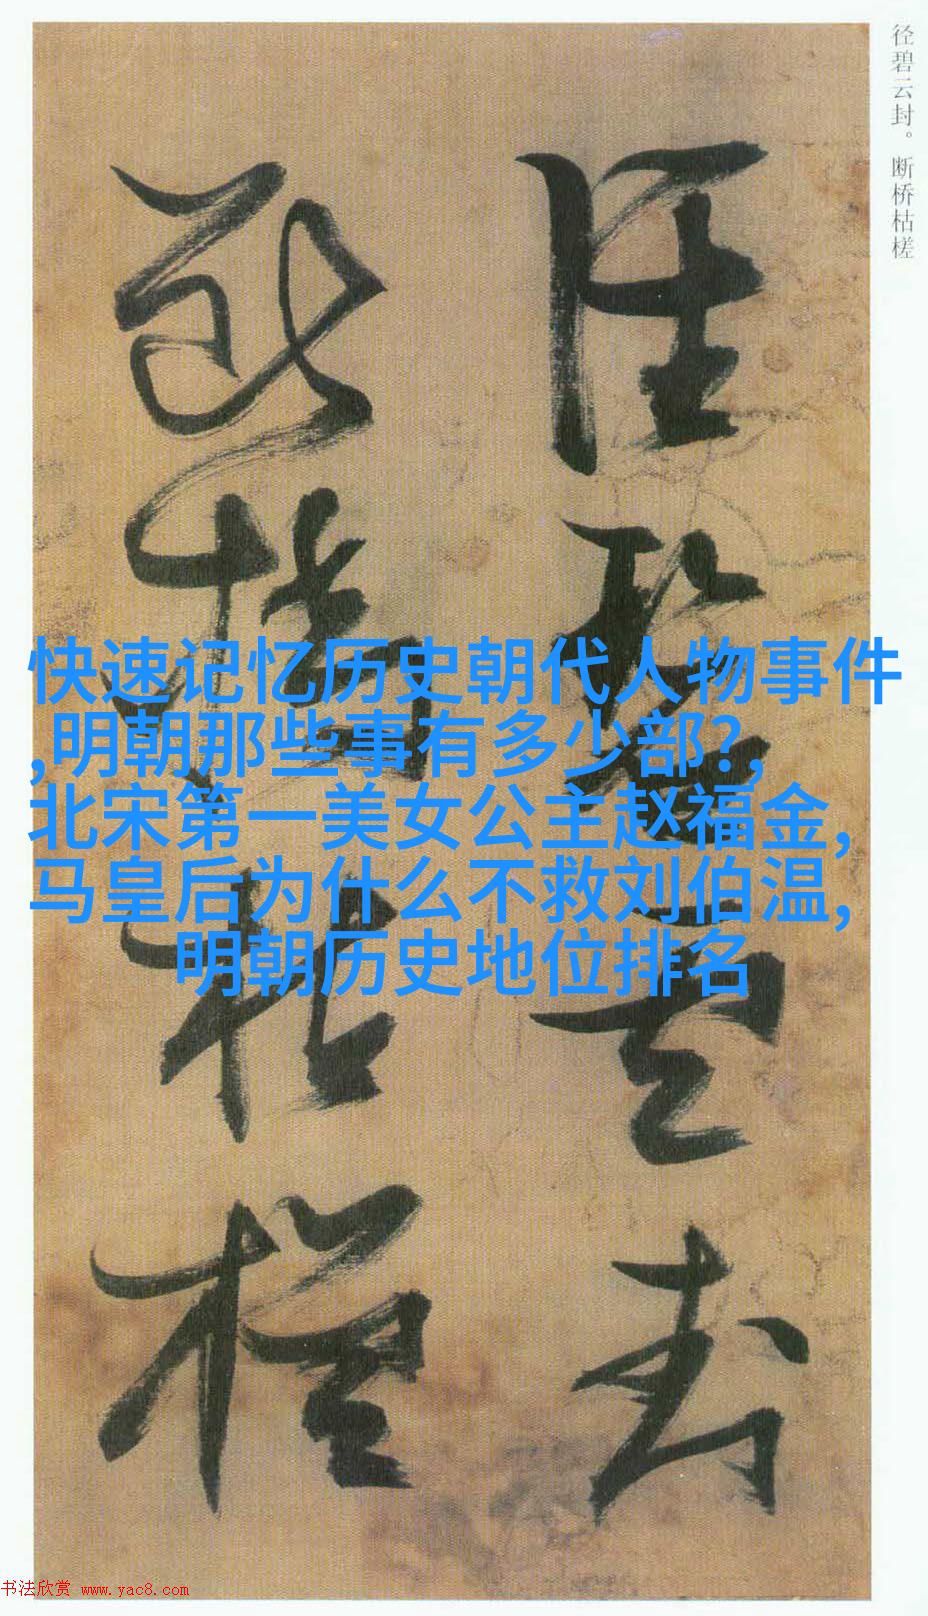 径碧云封。断桥枯槎
径碧云封
断桥枯槎
快速记忆历史朝代人物事件
,明朝那些事有多少部?,
北宋第一美女公主赵福金,
马皇后为什么不救刘伯温,
明朝历史地位排名
书法欣赏 www.yac8.com